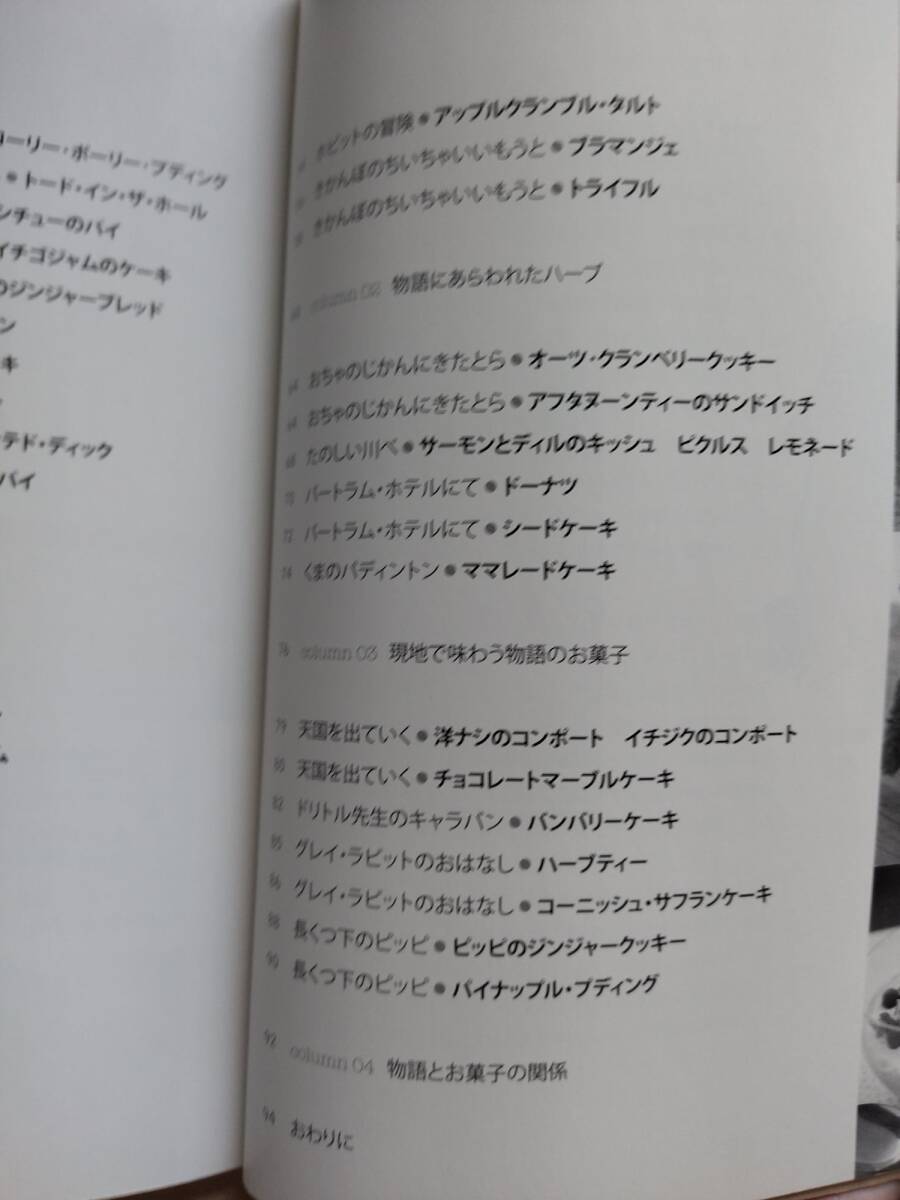 ローリー・ポーリー・プディング
・トード・イン・ザ・ホール
ンチューのパイ
イチゴジャムのケーキ
のジンジャーブレッド
ン
キ
テド・ディック
パイ
ホビットの冒険●アップルクランブル・タルト
きかんぼのちいちゃいいもうと●ブラマンジェ
きかんぼのちいちゃいいもうと●トライフル
column 02 物語にあらわれたハーブ
おちゃのじかんにきたとら●オーツ・クランベリークッキー
おちゃのじかんにきたとら●アフタヌーンティーのサンドイッチ
68 たのしい川べ●サーモンとディルのキッシュ ピクルス レモネード
70 バートラム・ホテルにて●ドーナツ
72 バートラム・ホテルにて●シードケーキ
74 くまのパディントン●ママレードケーキ
76 column 03 現地で味わう物語のお菓子
79 天国を出ていく●洋ナシのコンポート イチジクのコンポート
80 天国を出ていく●チョコレートマーブルケーキ
82 ドリトル先生のキャラバン●バンバリーケーキ
85 グレイ・ラビットのおはなし●ハーブティー
86 グレイ・ラビットのおはなし●コーニッシュ・サフランケーキ
88 長くつ下のピッピ●ピッピのジンジャークッキー
90 長くつ下のピッピ●パイナップル・プディング
92 column 04 物語とお菓子の関係
94 おわりに